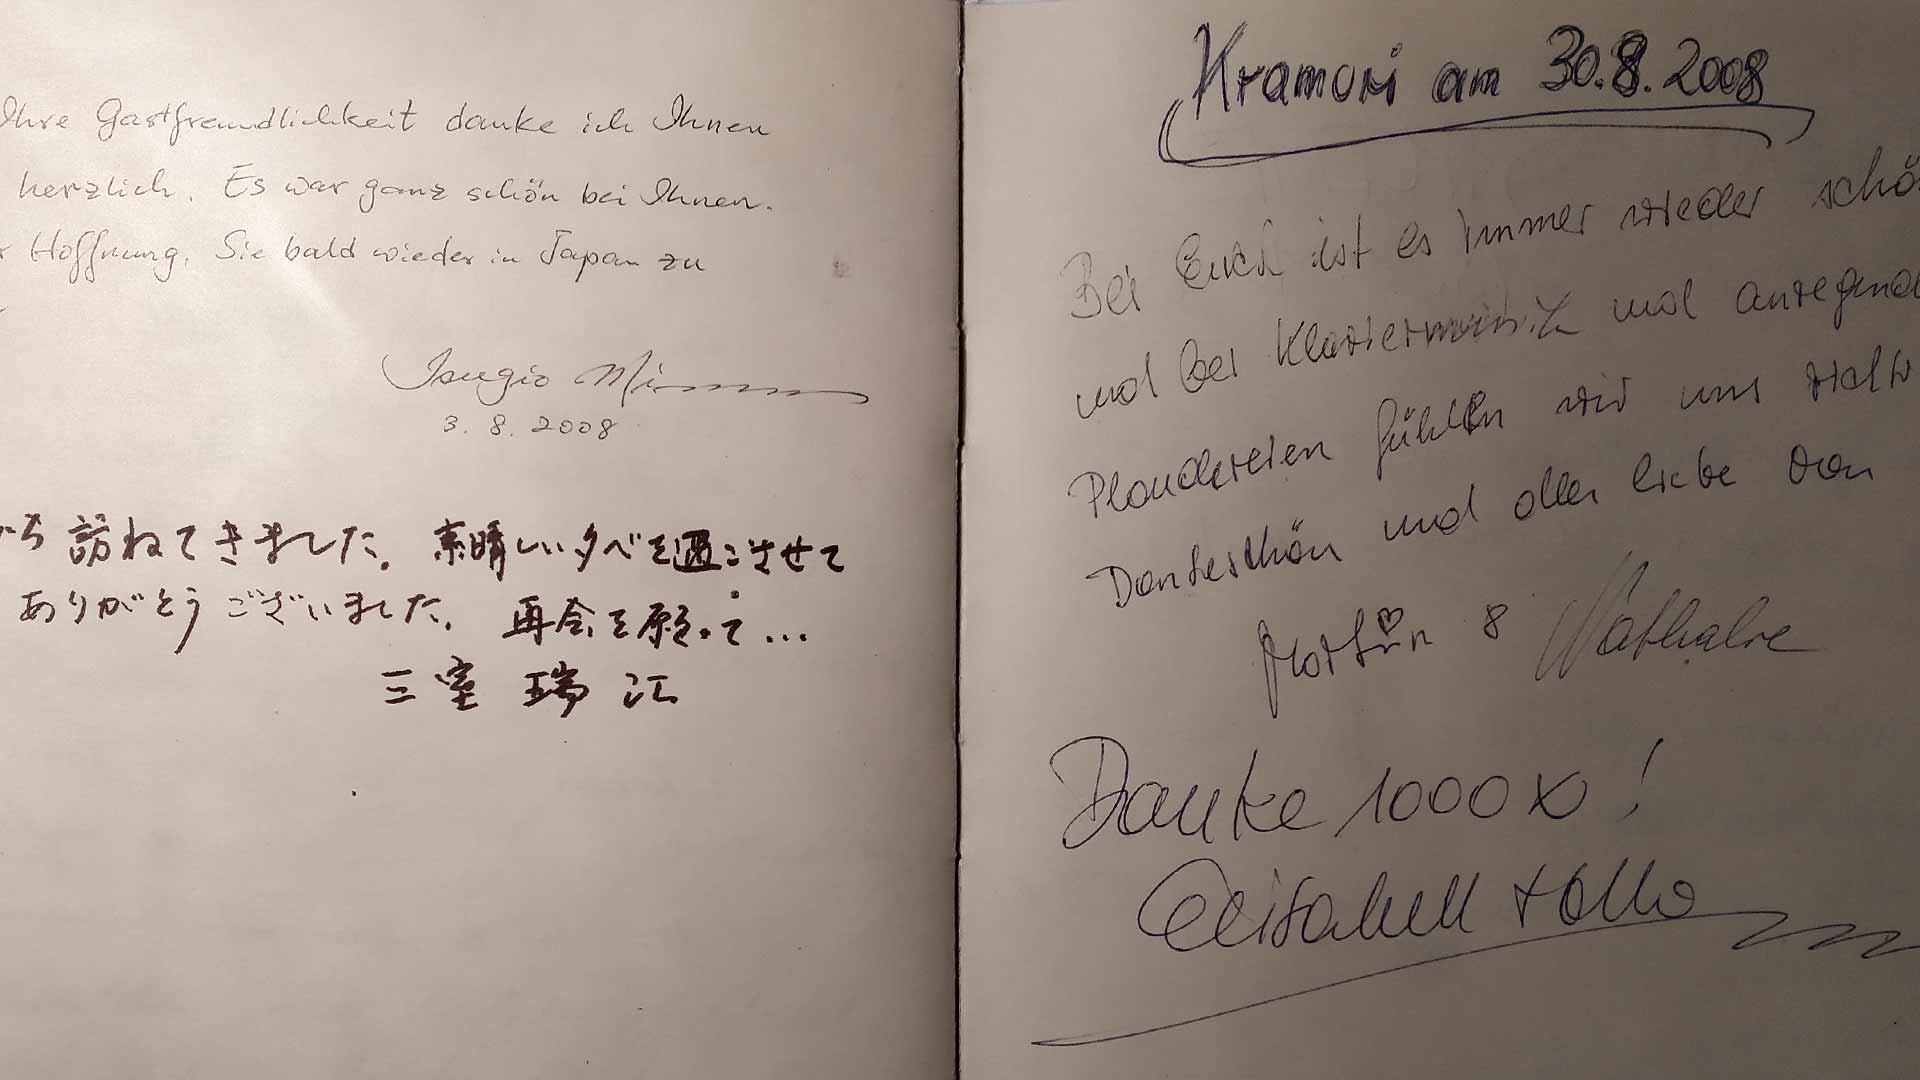 Ihre Gastfreundlichkeit danke ich Ihnen
herzlich. Es war ganz schön bei Ihnen.
Hoffnung, Sie bald wieder in Japan zu
3. 8. 2008
訪ねてきました。素晴しい夕べを過ごさせて
ありがとうございました。再会を願って...
三室 瑞江
am 30.8.2008
Bei Euch ist es immer wieder
und bei Klaviermusik und
Plaudereien fühlen wir uns
Dankeschön und alles liebe von
& Nathalie
Danke 1000 x!
Elisabeth +